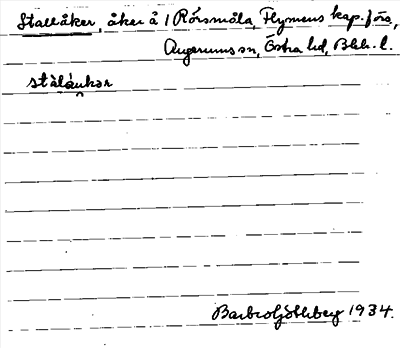 Stallåker, åker å 1 Rörsmåla, Flymens kap.förs,
Augerums sn, Östra hd, Blek. l.
stàláukər
Barbro Göthberg 1934.